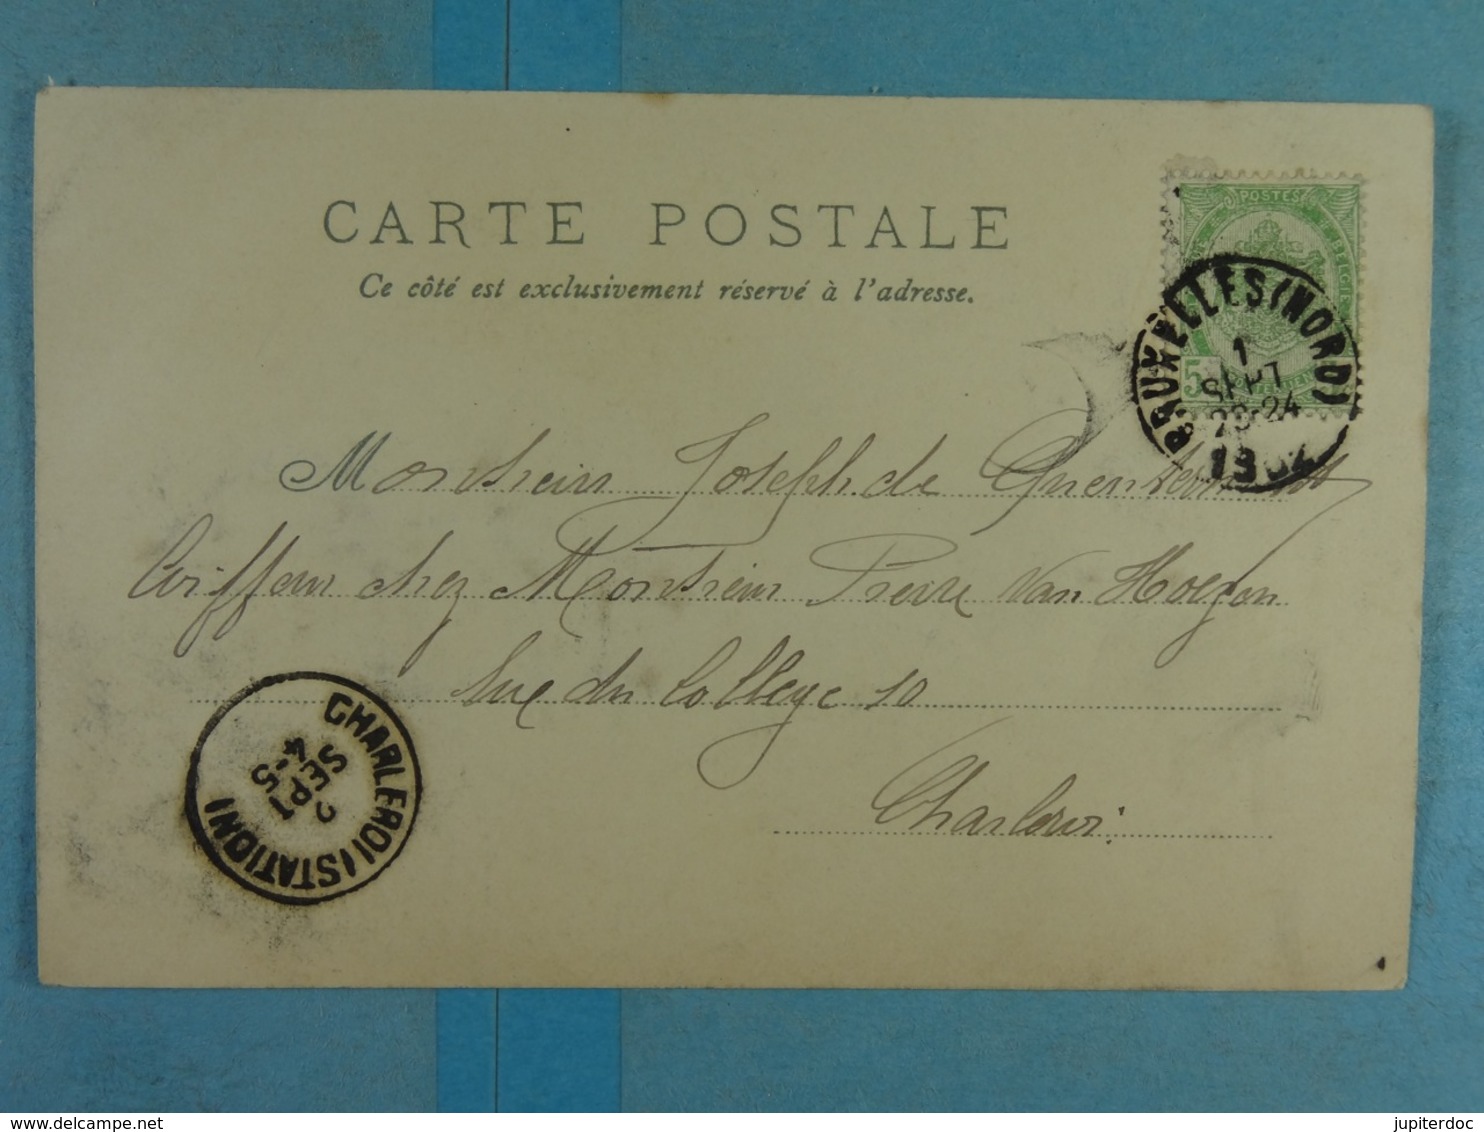 CARTE POSTALE
Ce côté est exclusivement réservé à l'adresse.
POSTES
BELGIQUE
5
BRUXELLES (NORD)
1
SEPT
23-24
Monsieur Joseph de
Coiffeur chez Monsieur Pierre Van
Rue du Collège 10
Charleroi
CHARLEROI (STATION)
2
SEPT
4-5
jupiterdoc
www.delcampe.net